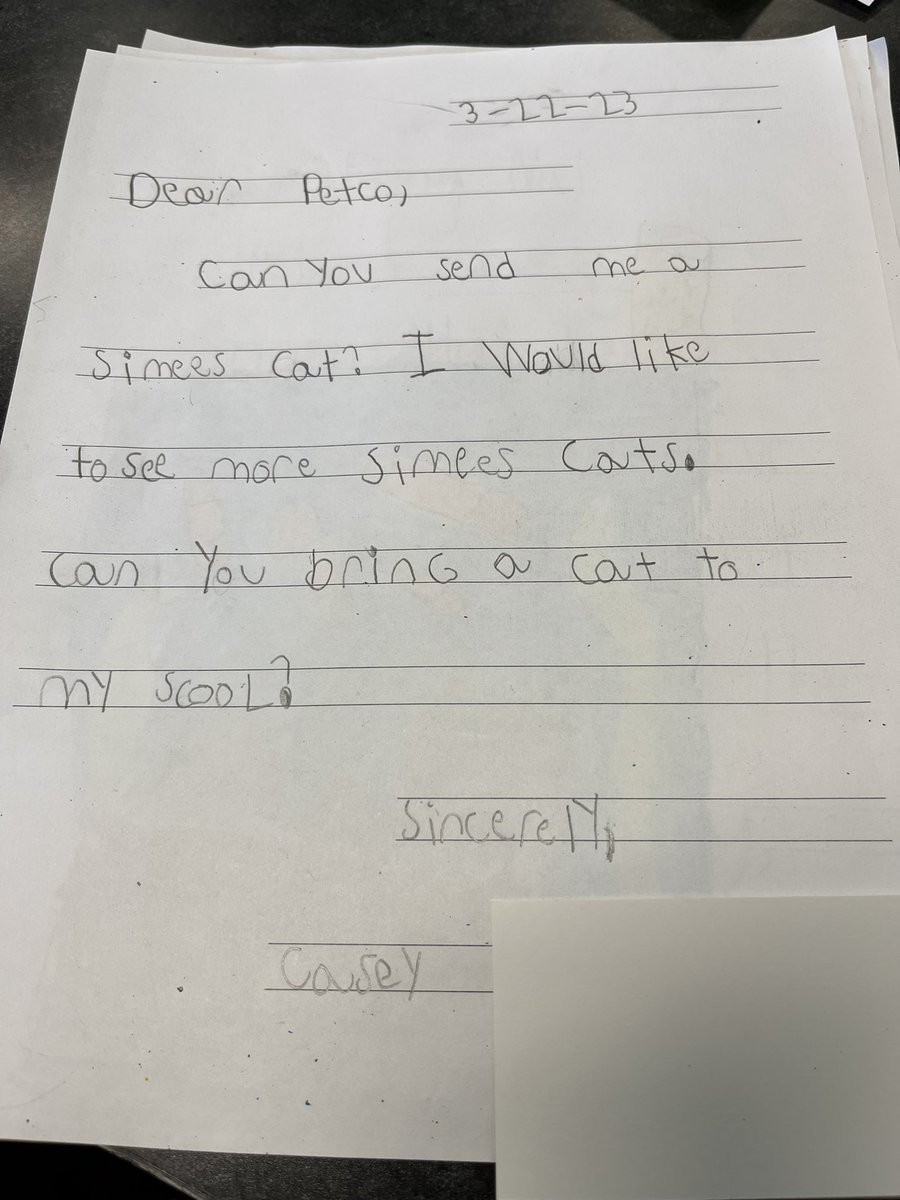 3-22-23
Dear Petco,
Can You send me a
Simees Cat? I Would like
to see more Simees Cats.
Can You bring a cat to
my scool?
Sincerely,
Casey